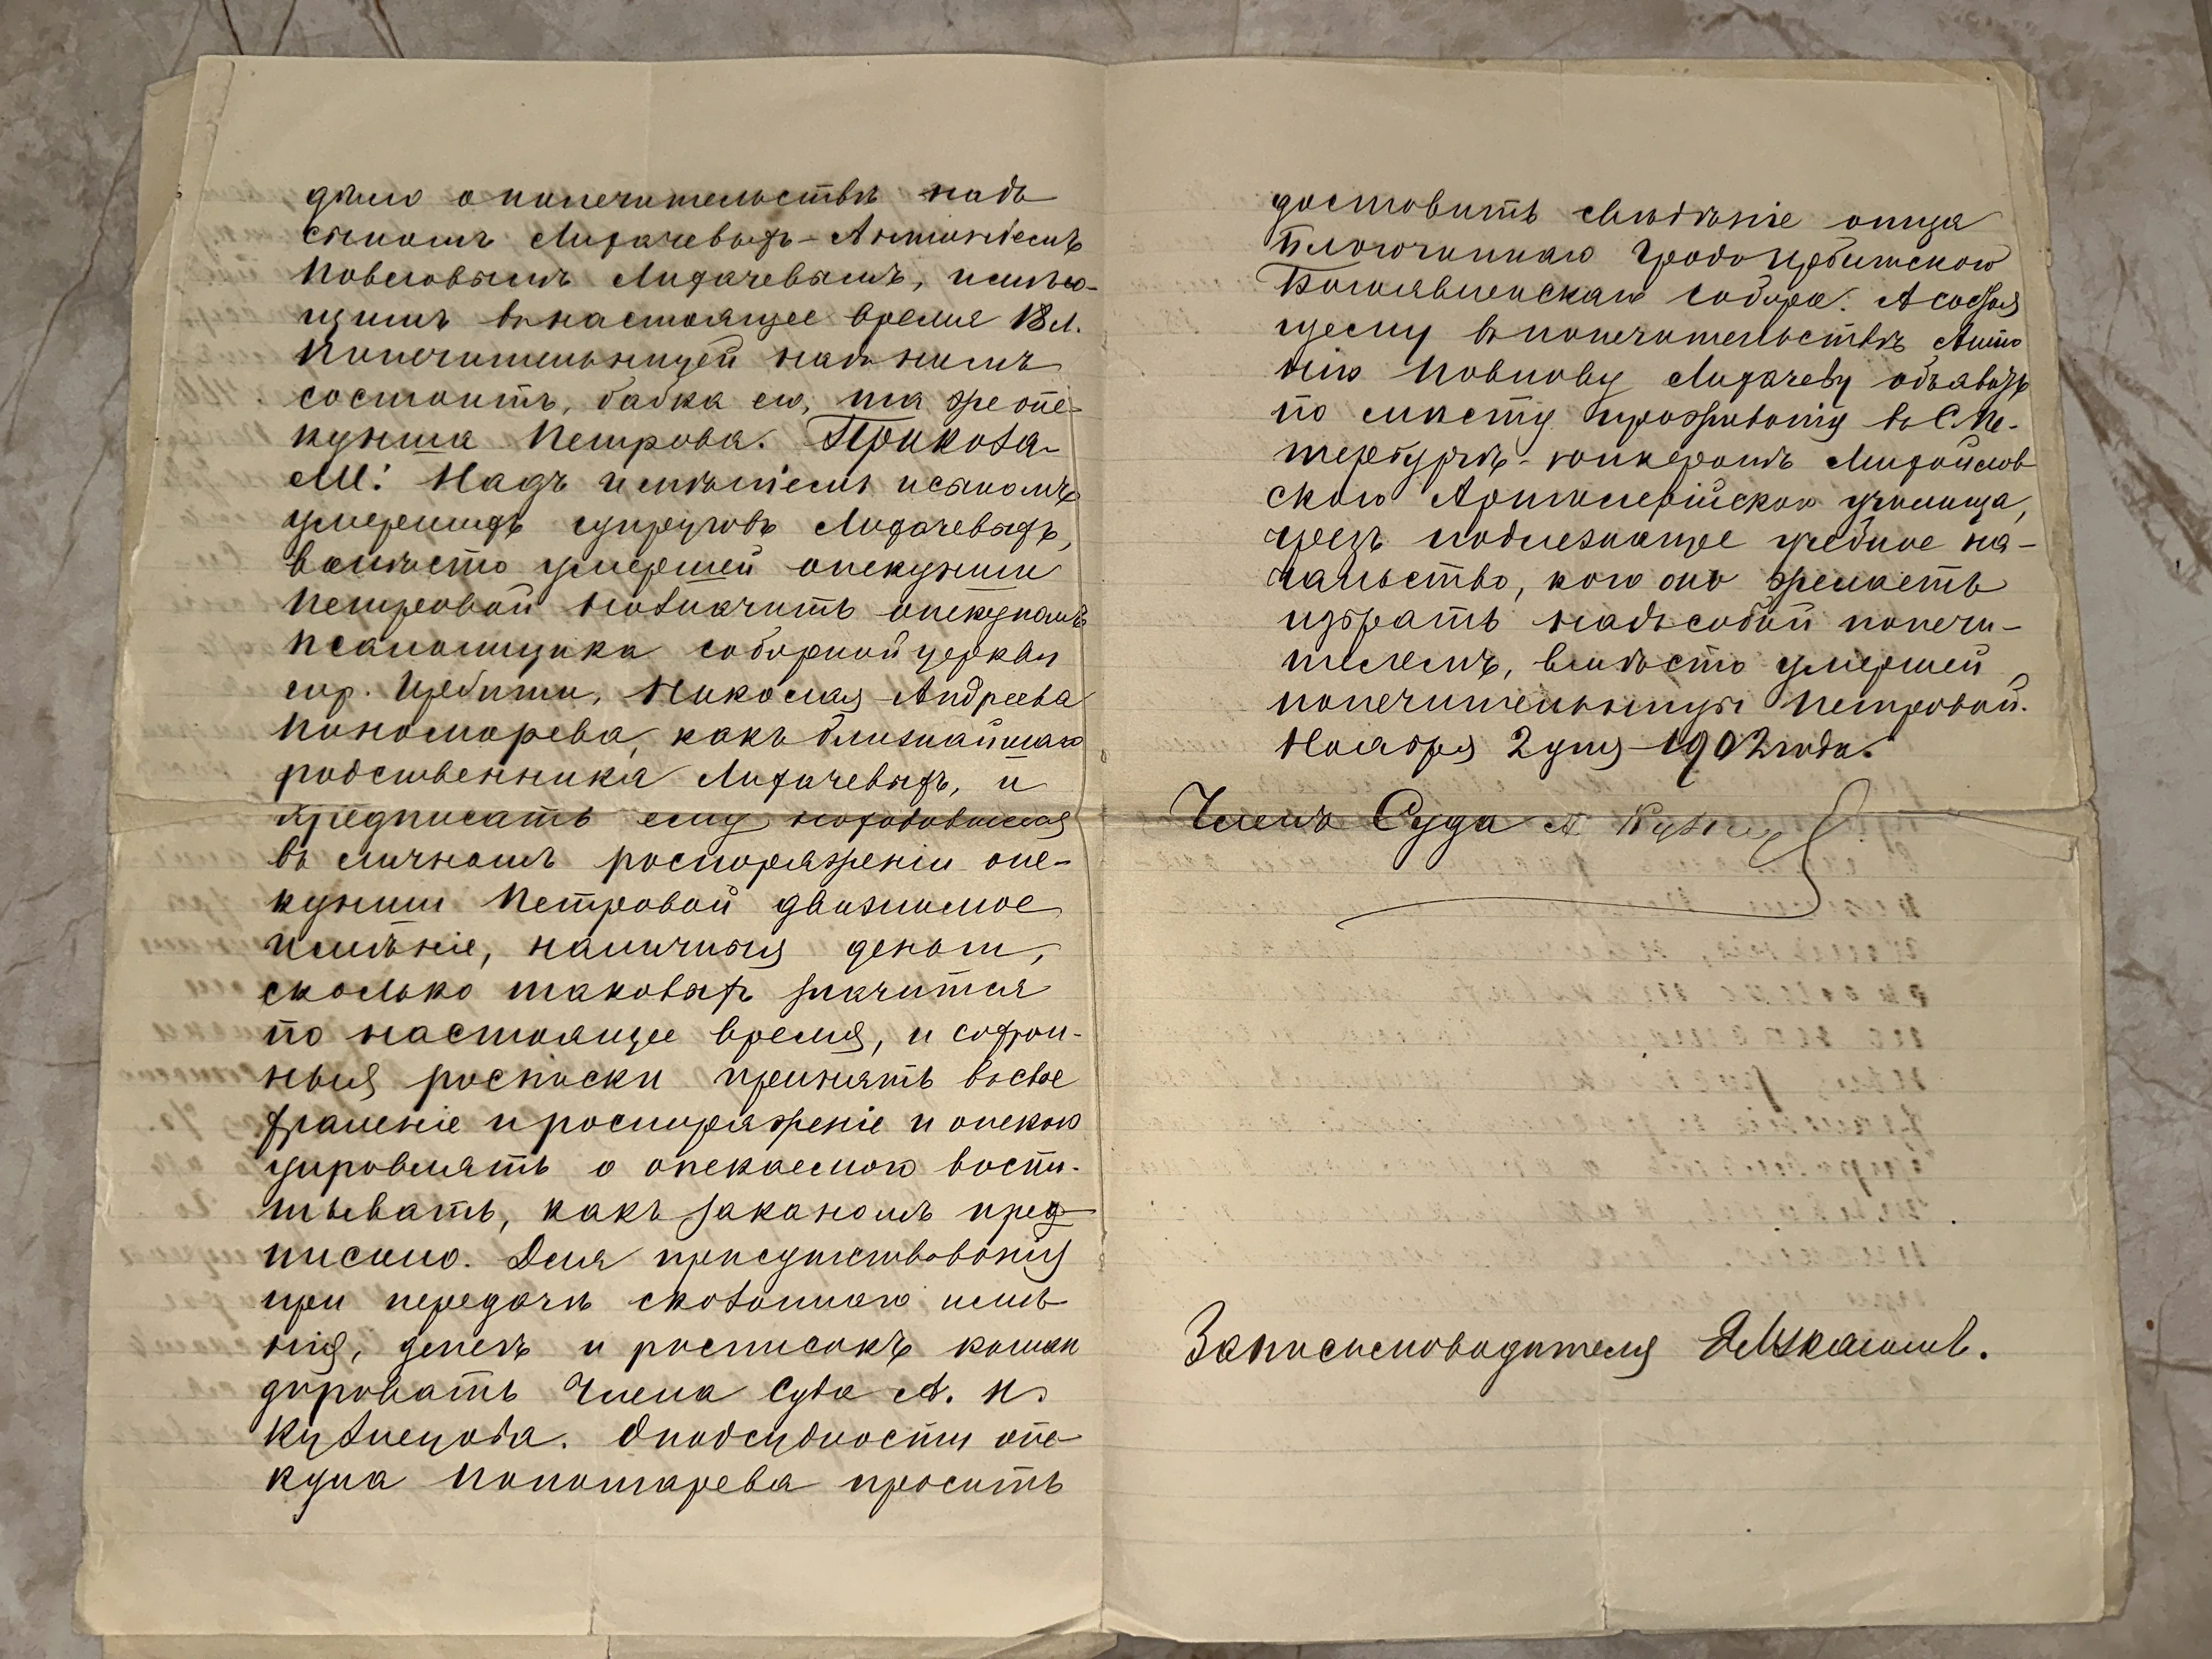 дѣло о попечительствѣ надъ
сыномъ Лихачевыхъ-Антоніемъ
Павловымъ Лихачевымъ, имѣю-
щимъ въ настоящее время 18 л.
Попечительницей надъ нимъ
состоитъ, бабка его, та же опе-
кунша Петрова. Приказа-
ли: Надъ имѣніемъ и сыномъ
умершихъ супруговъ Лихачевыхъ,
вмѣсто умершей опекунши
Петровой назначить опекуномъ
псаломщика соборной церкви
гор. Ирбити, Николая Андреева
Пономарева, какъ ближайшаго
родственника Лихачевыхъ, и
предписать ему находившееся
въ личномъ распоряженіи опе-
кунши Петровой движимое
имѣніе, наличныя деньги,
сколько таковыхъ значится
по настоящее время, и сохран-
ныя росписки принять въ свое
храненіе и распоряженіе и опекою
управлять а опекаемаго воспи-
тывать, какъ закономъ пред-
писано. Для присутствованія
при передачѣ сказаннаго имѣ-
нія, денегъ и росписокъ коман
дировать Члена Суда А. И.
Кузнецова. О подсудности опе-
куна Пономарева просить
доставить свѣдѣніе отца
Благочиннаго Градо Ирбитскаго
Богоявленскаго собора. А состоя
щему въ попечительствѣ Анто
нію Павлову Лихачеву объявить
по мѣсту проживанія въ С.Пе-
тербургѣ-юнкеромъ Михайлов
скаго Артиллерійскаго училища,
чрезъ подлежащее учебное на-
чальство, кого онъ желаетъ
избрать надъ собой попечи-
телемъ, вмѣсто умершей
попечительницы Петровой.
Ноября 2 дня 1902 года.
Членъ Суда А Кузнец
За письмоводителя